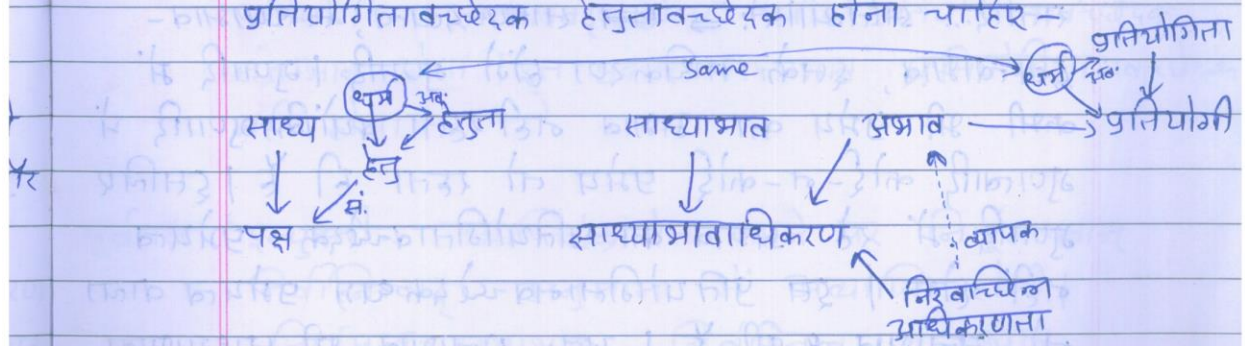 प्रतियोगितावच्छेदक हेतुतावच्छेदक होना चाहिए -
प्रतियोगिता
Same
धर्म अव. धर्म अव.
साध्य हेतुता साध्याभाव अभाव प्रतियोगी
हेतु
सं.
पक्ष साध्याभावाधिकरण व्यापक
निरवच्छिन्न
अधिकरणता